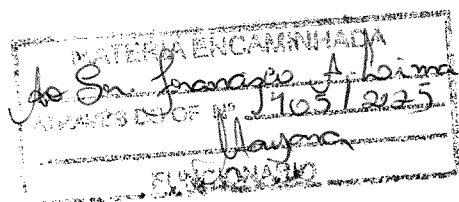 MATÉRIA ENCAMINHADA
Ao Sr. A. Lima
ATRAVÉS DO OF Nº 1405/2225
Mayara
FUNCIONÁRIO